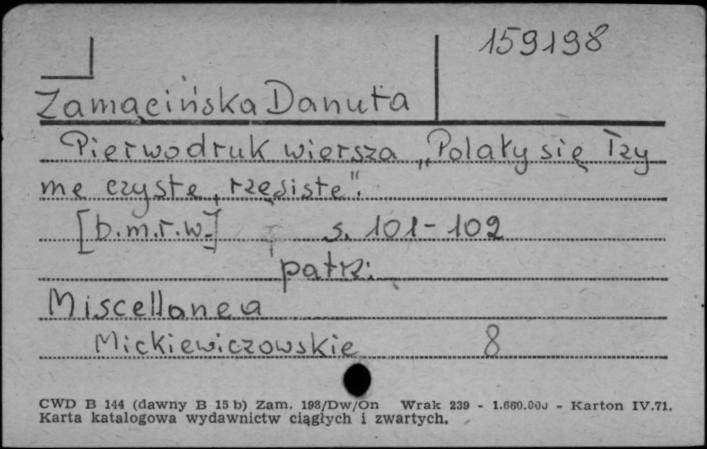 159198
Zamącińska Danuta
Pierwodruk wiersza „Polały się łzy
me czyste, rzęsiste".
[b.m.r.w.] s. 101-102
patrz:
Miscellanea
Mickiewiczowskie 8
CWD B 144 (dawny B 15 b) Zam. 198/Dw/On Wrak 239 - 1.660.000 - Karton IV.71.
Karta katalogowa wydawnictw ciągłych i zwartych.